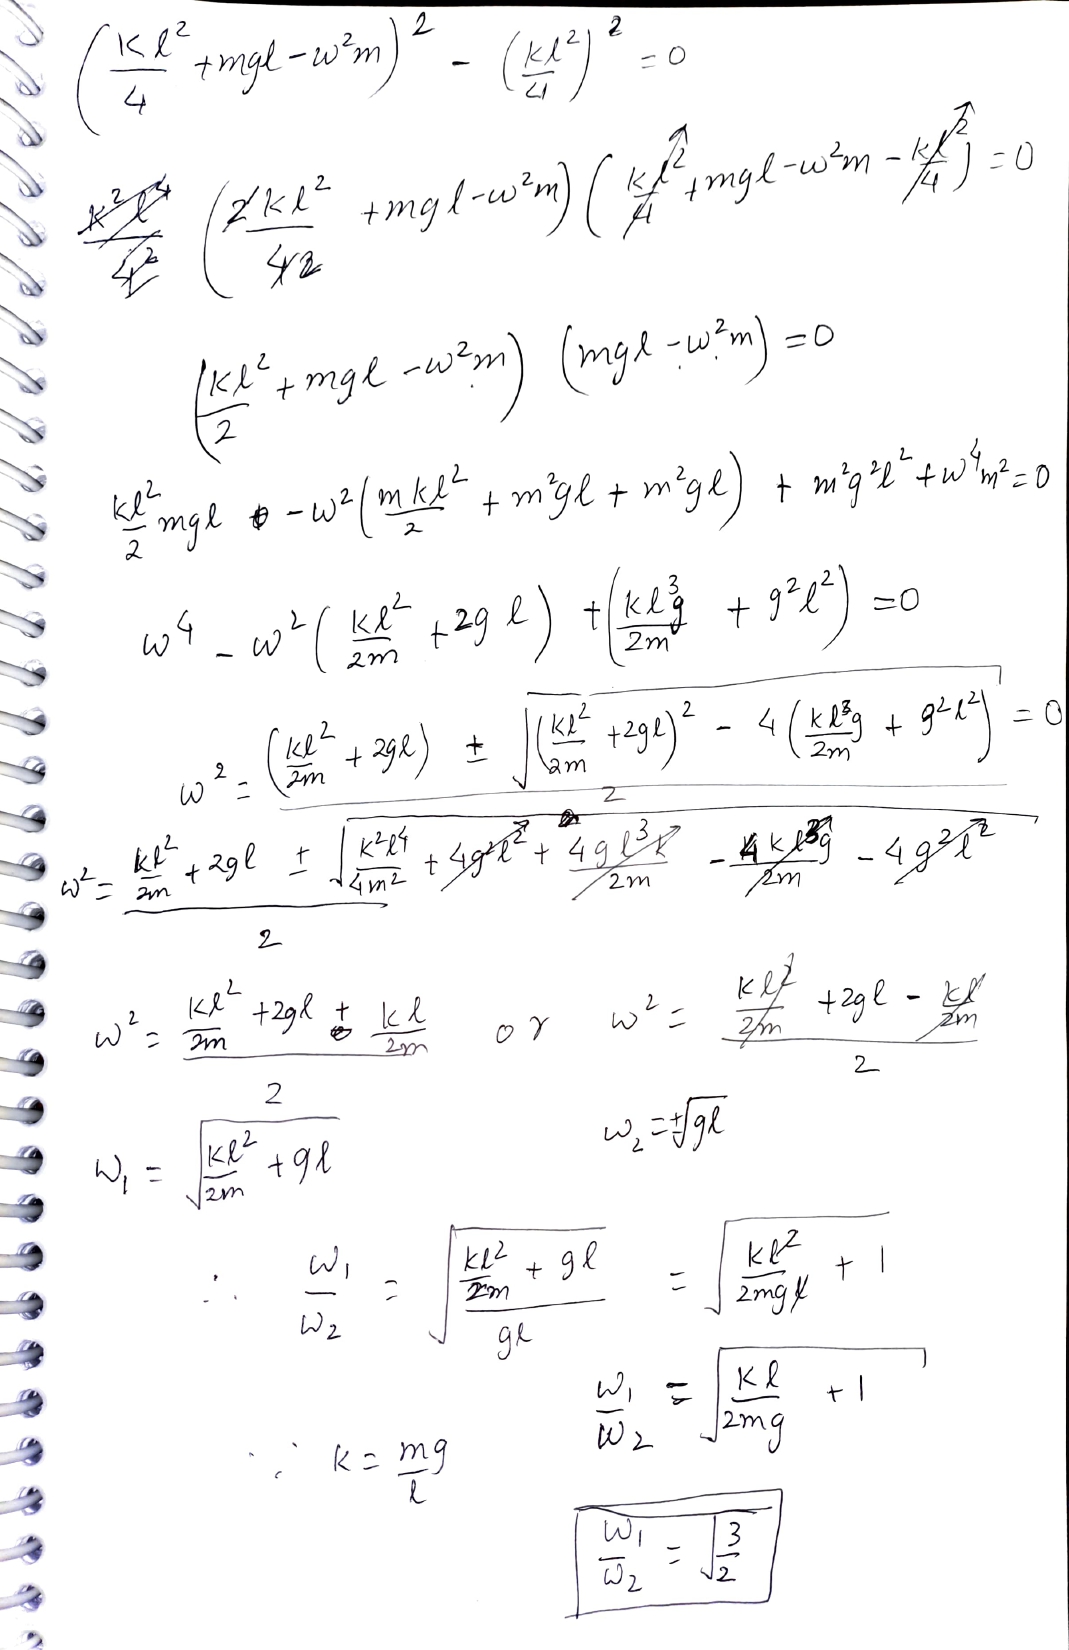 (kl²/4 + mgl - w²m)² - (kl²/4)² = 0
k²l⁴/4² (2kl²/42 + mgl - w²m) (kl²/4 + mgl - w²m - kl²/4) = 0
(kl²/2 + mgl - w²m) (mgl - w²m) = 0
kl²/2 mgl - w²(mkl²/2 + m²gl + m²gl) + m²g²l² + w⁴m² = 0
w⁴ - w²(kl²/2m + 2gl) + (kl³g/2m + g²l²) = 0
w² = ((kl²/2m + 2gl) ± √((kl²/2m + 2gl)² - 4(kl³g/2m + g²l²)))/2 = 0
w² = (kl²/2m + 2gl ± √(k²l⁴/4m² + 4g²l² + 4gl³k/2m - 4kl³g/2m - 4g²l²))/2
w² = (kl²/2m + 2gl + kl/2m)/2 or w² = (kl²/2m + 2gl - kl/2m)/2
w₁ = √(kl²/2m + gl) w₂ = ±√gl
∴ w₁/w₂ = √((kl²/2m + gl)/gl) = √(kl²/2mgl + 1)
w₁/w₂ = √(kl/2mg + 1)
∵ k = mg/l
w₁/w₂ = √(3/2)